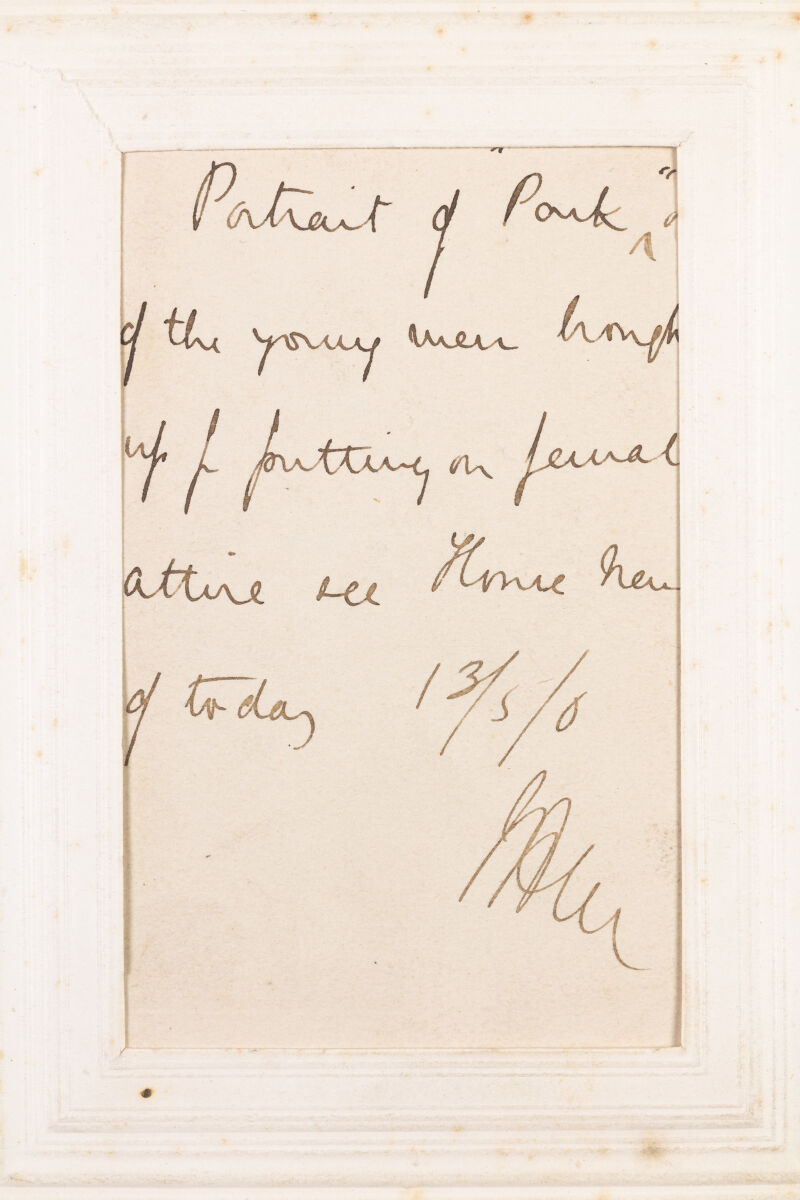 Portrait of "Park"
of the young men brough
up for putting on femal
attire see Home New
of today 13/5/0